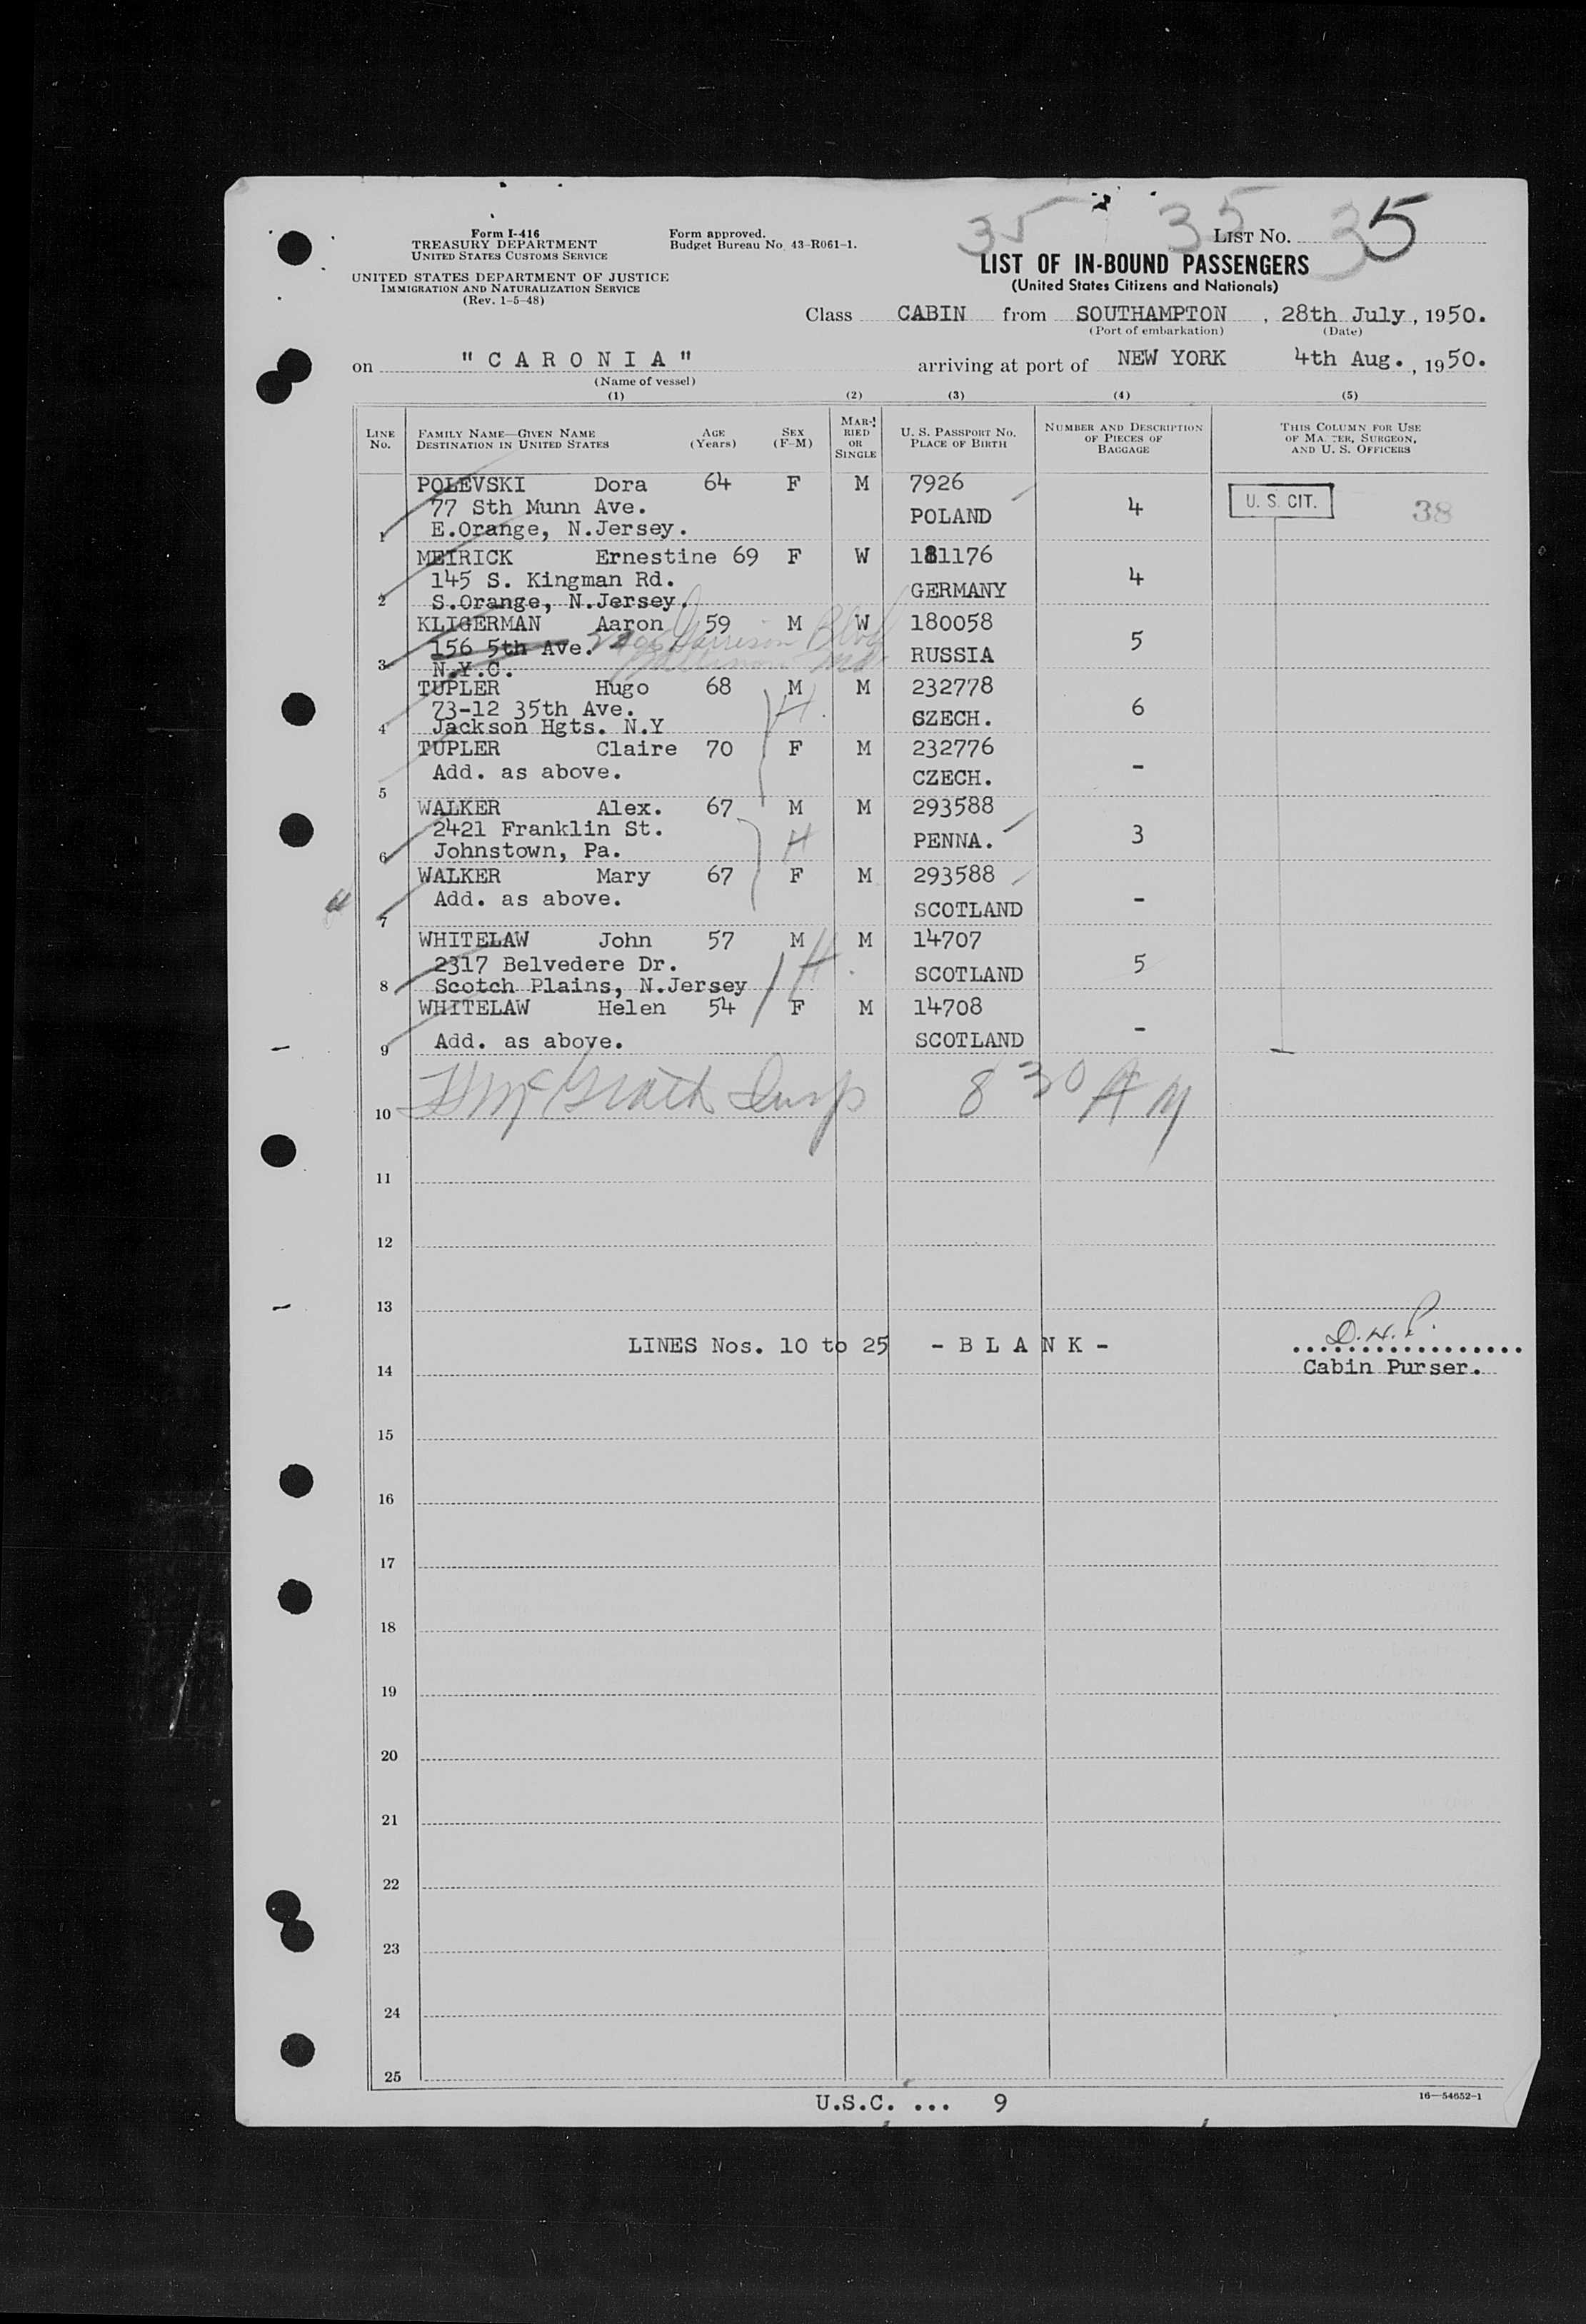 35 35 35
Form I-416
TREASURY DEPARTMENT
UNITED STATES CUSTOMS SERVICE
UNITED STATES DEPARTMENT OF JUSTICE
IMMIGRATION AND NATURALIZATION SERVICE
(Rev. 1-5-48)
Form approved.
Budget Bureau No. 43-R061-1.
LIST NO.
LIST OF IN-BOUND PASSENGERS
(United States Citizens and Nationals)
Class CABIN from SOUTHAMPTON, 28th July, 1950.
(Port of embarkation) (Date)
on "CARONIA" arriving at port of NEW YORK 4th Aug., 1950.
(Name of vessel)
(1) (2) (3) (4) (5)
LINE NO.
FAMILY NAME—GIVEN NAME
DESTINATION IN UNITED STATES
AGE (Years)
SEX (F-M)
MARRIED OR SINGLE
U. S. PASSPORT NO.
PLACE OF BIRTH
NUMBER AND DESCRIPTION OF PIECES OF BAGGAGE
THIS COLUMN FOR USE OF MASTER, SURGEON, AND U. S. OFFICERS
POLEVSKI Dora 64 F M 7926
77 Sth Munn Ave. POLAND 4 U. S. CIT. 38
1 E.Orange, N.Jersey.
MEIRICK Ernestine 69 F W 181176
145 S. Kingman Rd. GERMANY 4
2 S.Orange, N.Jersey.
KLIGERMAN Aaron 59 M W 180058
156 5th Ave. Garrison Blvd RUSSIA 5
3 N.Y.C. Baltimore Md
TUPLER Hugo 68 M M 232778
73-12 35th Ave. H. CZECH. 6
4 Jackson Hgts. N.Y
TUPLER Claire 70 F M 232776
Add. as above. CZECH. -
5
WALKER Alex. 67 M M 293588
2421 Franklin St. H PENNA. 3
6 Johnstown, Pa.
WALKER Mary 67 F M 293588
Add. as above. SCOTLAND -
7
WHITELAW John 57 M M 14707
2317 Belvedere Dr. H. SCOTLAND 5
8 Scotch Plains, N.Jersey
WHITELAW Helen 54 F M 14708
9 Add. as above. SCOTLAND -
McGrath Insp 8 30 AM
10
11
12
13
LINES Nos. 10 to 25 - B L A N K - D.H.P.
14 Cabin Purser.
15
16
17
18
19
20
21
22
23
24
25
U.S.C. ... 9
16—54652-1